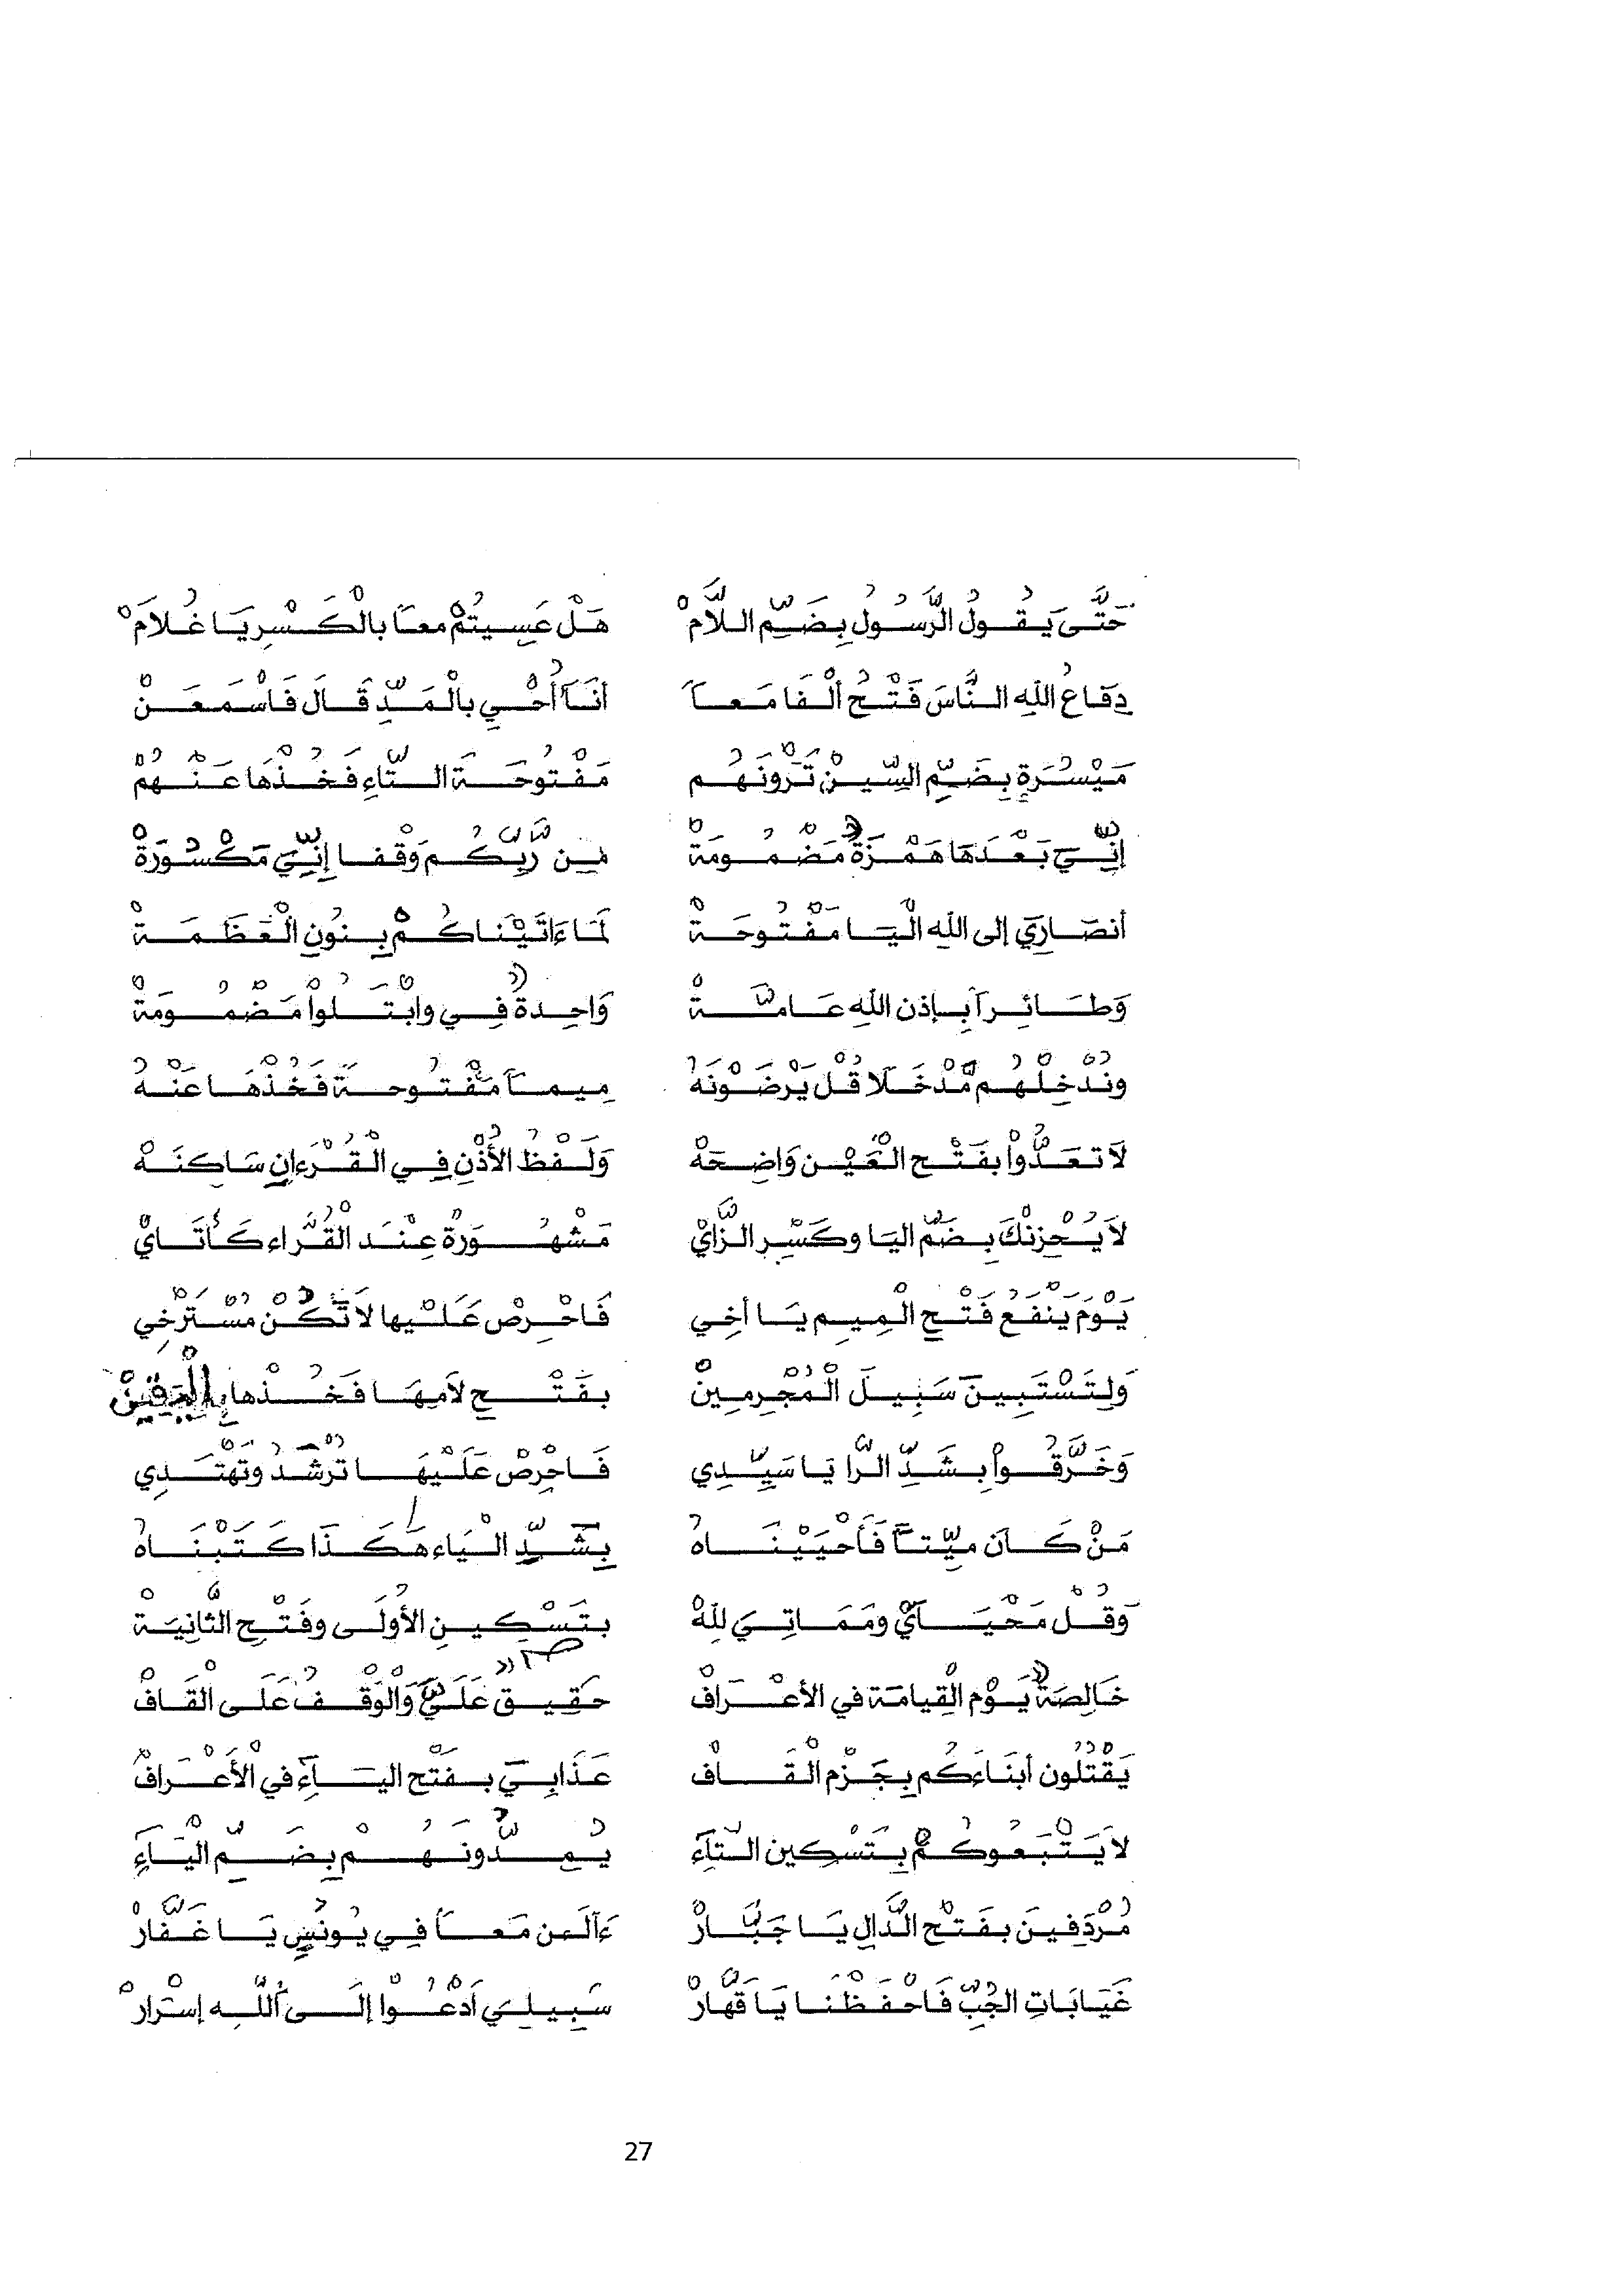 حَتَّىٰ يَقُولُ الرَّسُولُ بِضَمِّ اللاَّمْ هَلْ عَسِيتُمْ معاً بالْكَسْرِ يَا غُلاَمْ
دِفَاعُ اللهِ النَّاسَ فَتْحُ ألْفَا مَعاً أنَآ أُحْيِي بالْمَدِّ قَالَ فَاسْمَعَنْ
مَيْسُرَةٍ بِضَمِّ السِّينْ تَرَوْنَهُم مَفْتوحَةَ التَّاءِ فَخُذْهَا عَنْهُمْ
إنِّيَ بَعْدَهَا هَمْزَةٌ مَضْمُومَةْ مِن رَّبِّكُم وَقْفا إنِّيَ مَكْسُورَةْ
أنصَارِيَ إلى اللهِ الْيَا مَفْتُوحَةْ لَمَا ءَاتَيْنَاكُم بِنُونِ الْعَظَمَةْ
وَطَائِراً بِإذن اللهِ عَامَّةْ وَاحِدةٌ فِي وابْتَلُوا مَضْمُومَةْ
ونُدْخِلْهُم مَّدْخَلاً قُلْ يَرْضَوْنَهُ مِيماً مَفْتُوحةً فَخُذْهَا عَنْهُ
لاَ تعَدُّواْ بفَتْحِ الْعَيْنِ وَاضِحَهْ وَلَفْظُ الأُذْنِ فِي الْقُرْءانِ سَاكِنَهْ
لاَ يُحْزِنْكَ بِضَمِّ اليَا وكَسْرِ الزَّايْ مَشْهُورَةٌ عِنْدَ الْقُرَّاء كَأَتَايْ
يَوْمَ يَنفَعُ فَتْحِ الْمِيمِ يَا أخِي فَاحْرِصْ عَلَيْها لاَ تَكُنْ مُسْتَرْخِي
وَلِتَسْتَبِينَ سَبِيلَ الْمُجْرِمِينْ بفَتْحِ لاَمِهَا فَخُذْها بِالْيَقِينْ
وَخَرَّقُواْ بِشَدِّ الرَّا يَا سَيِّدِي فَاحْرِصْ عَلَيْهَا تَرْشُدْ وتَهْتَدِي
مَنْ كَانَ مَيِّتاً فَأَحْيَيْنَاهُ بِشَدِّ الْيَاءِ هَكَذَا كَتَبْنَاهُ
وَقُلْ مَحْيَآيْ ومَمَاتِيَ لِلَّهْ بتَسْكِينِ الأُولَى وفَتْحِ الثَّانِيَةْ
خَالِصَةٌ يَوْمَ القِيامَة في الأعْرَافْ حَقِيقٌ عَلَيَّ وَالْوَقْفُ عَلَى الْقَافْ
يَقْتُلُونَ أبنَاءَكُم بِجَزْمِ الْقَافْ عَذَابِيَ بفَتْحِ اليَاءِ في الأَعْرَافْ
لاَ يَتْبَعُوكُمْ بِتَسْكِينِ التَّآءِ يُمِدُّونَهُمْ بِضَمِّ الْيَاءِ
مُرْدَفِينَ بفَتْحِ الدَّالِ يَا جَبَّارْ ءَآلَـٰن مَعاً فِي يُونُسٍ يَا غَفَّارْ
غَيَابَاتِ الجُبِّ فَاحْفَظْنَا يَا قَهَّارْ سَبِيلِيَ أَدْعُوا إلَى اللَّهِ إسْرَارْ
27